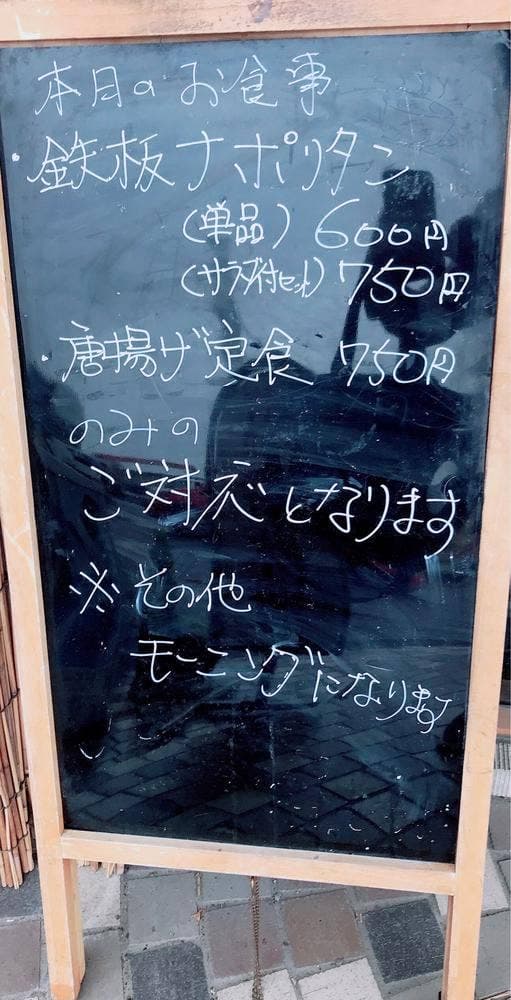 本日のお食事
・鉄板ナポリタン
(単品) 600円
(サラダ付セット) 750円
・唐揚げ定食 750円
のみの
ご対応となります
※その他
モーニングになります